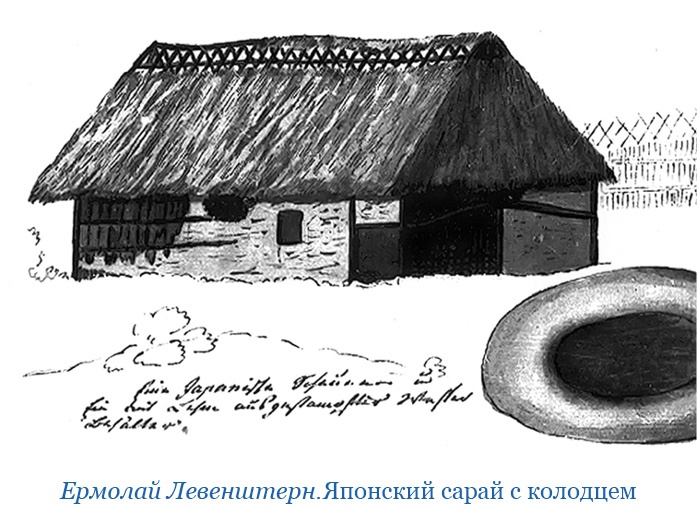 Eine Japanische Scheune u
Ein mit Lehm ausgestampfter Wasser
Behälter.
Ермолай Левенштерн.Японский сарай с колодцем